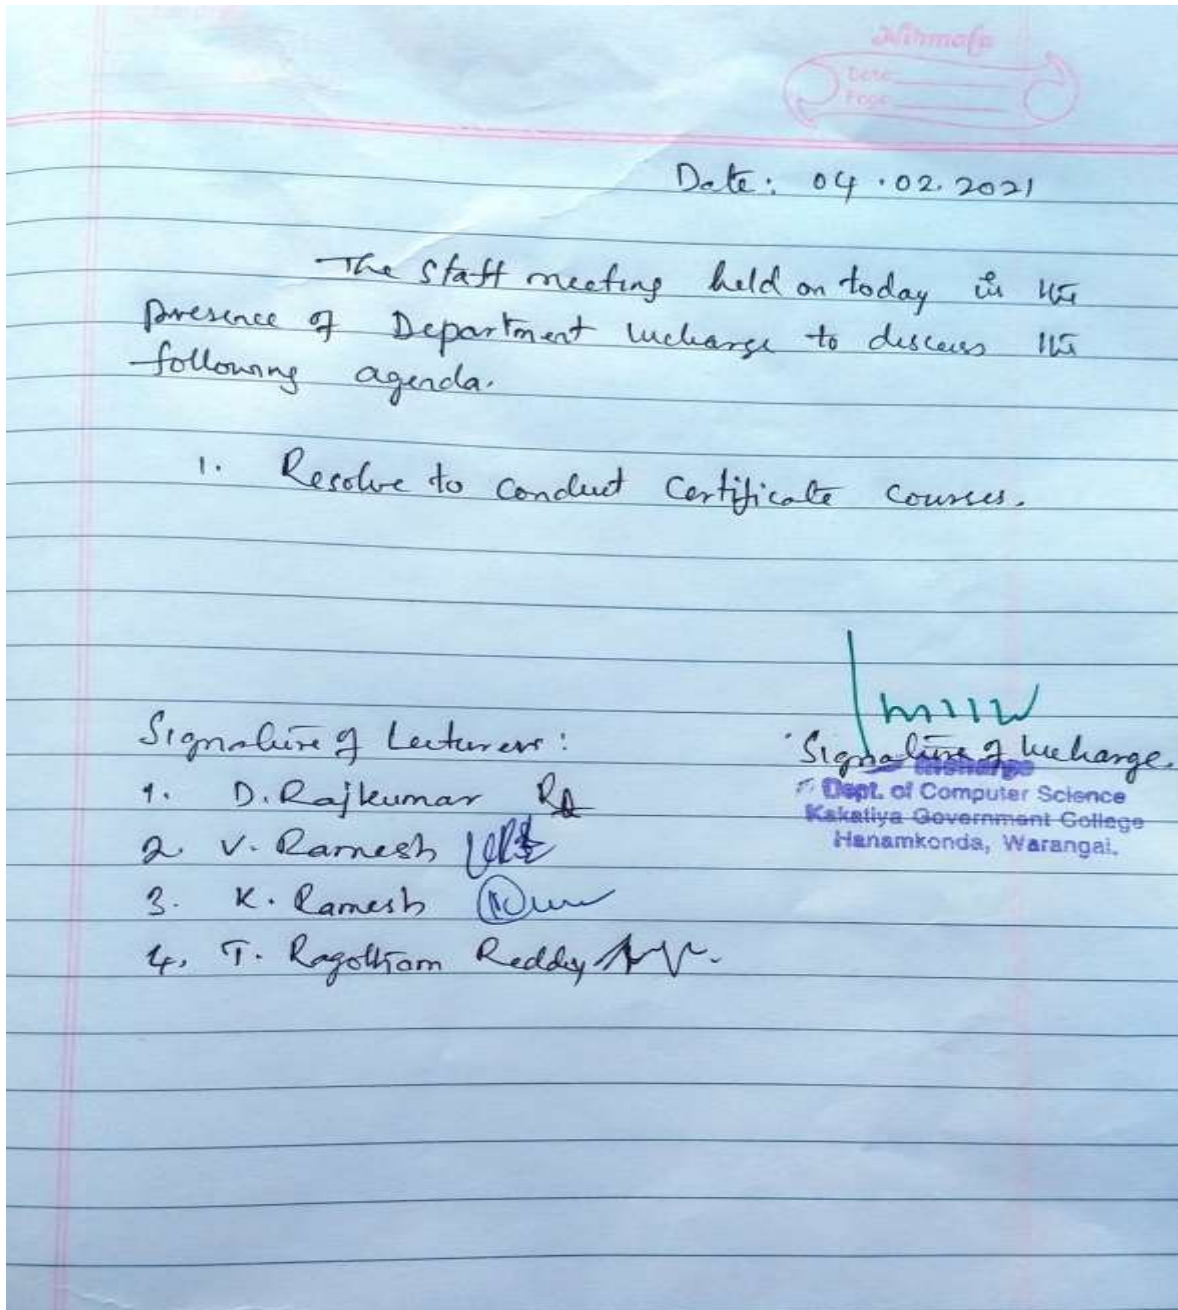 Nirmala
Date
Page
Date: 04.02.2021
The staff meeting held on today in the
presence of Department Incharge to discuss the
following agenda.
1. Resolve to conduct Certificate Courses.
Signature of Lecturers:
1. D. Rajkumar
2. V. Ramesh
3. K. Ramesh
4. T. Ragotham Reddy
Signature of Incharge.
Incharge
Dept. of Computer Science
Kakatiya Government College
Hanamkonda, Warangal.